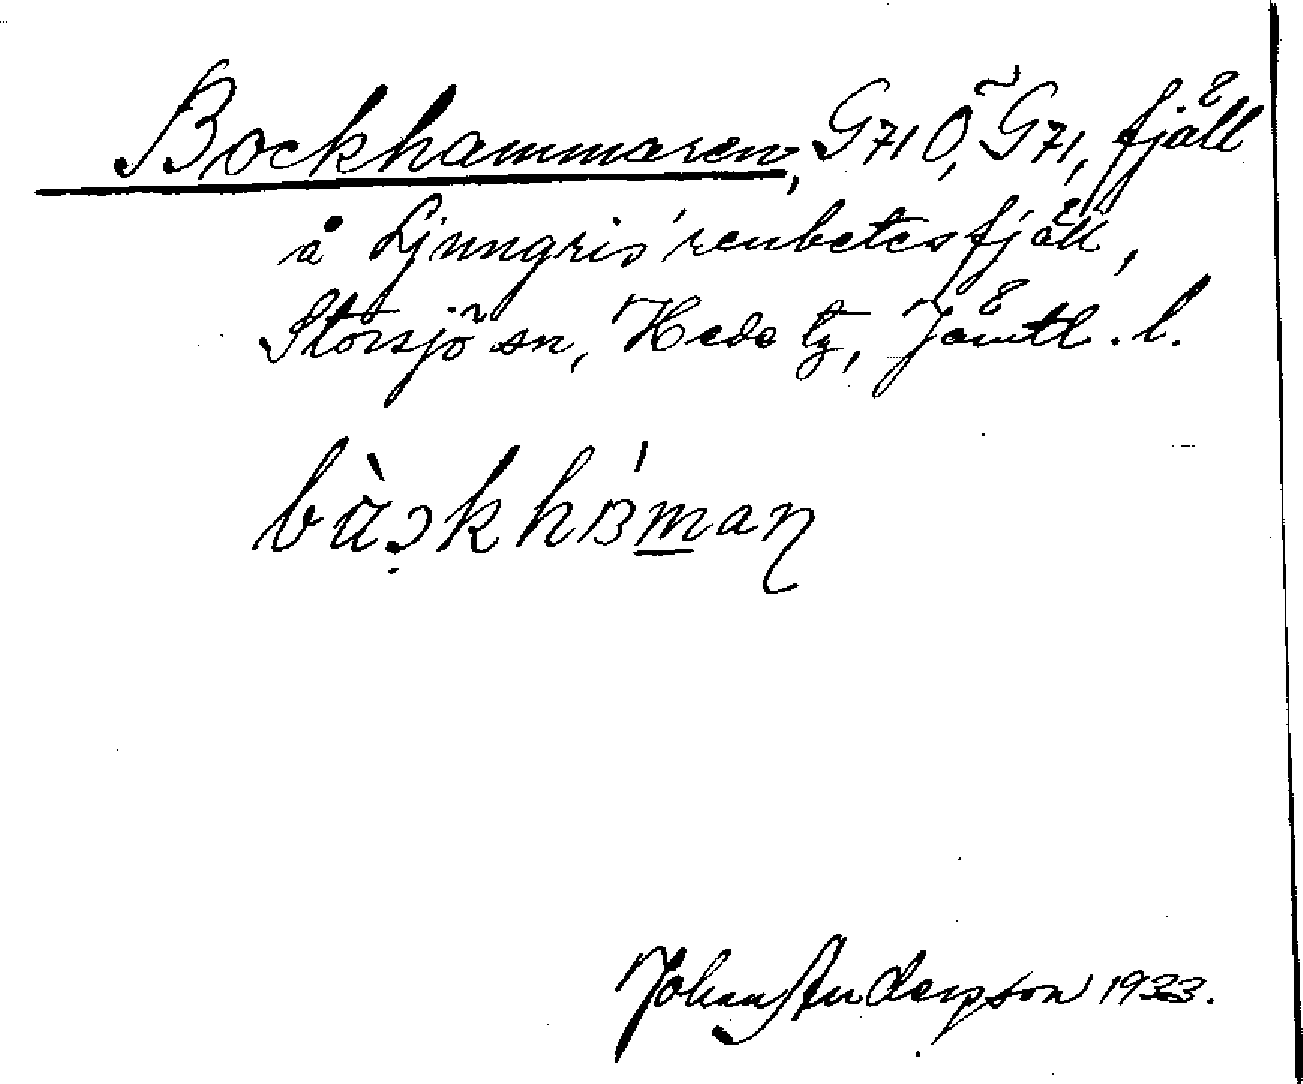 Bockhammaren, G71Ö, G71, fjäll
å Ljungris' renbetesfjäll,
Storsjö sn, Hede tg, Jämtl. l.
Johan Anderson 1933.